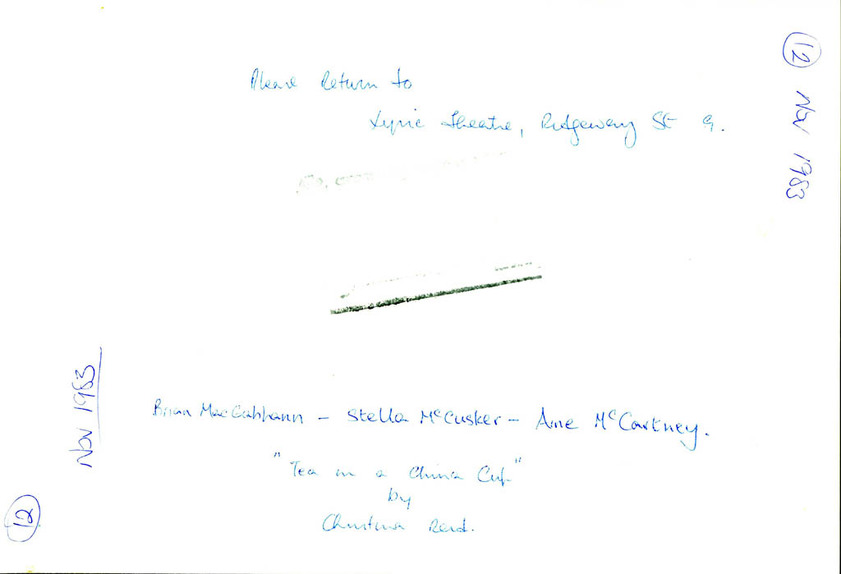 Please Return to
Lyric Theatre, Ridgeway St 9.
12 Nov 1983
Nov 1983
12
Brian MacGabhann - Stella McCusker - Aine McCartney.
"Tea in a China Cup"
by
Christina Reid.